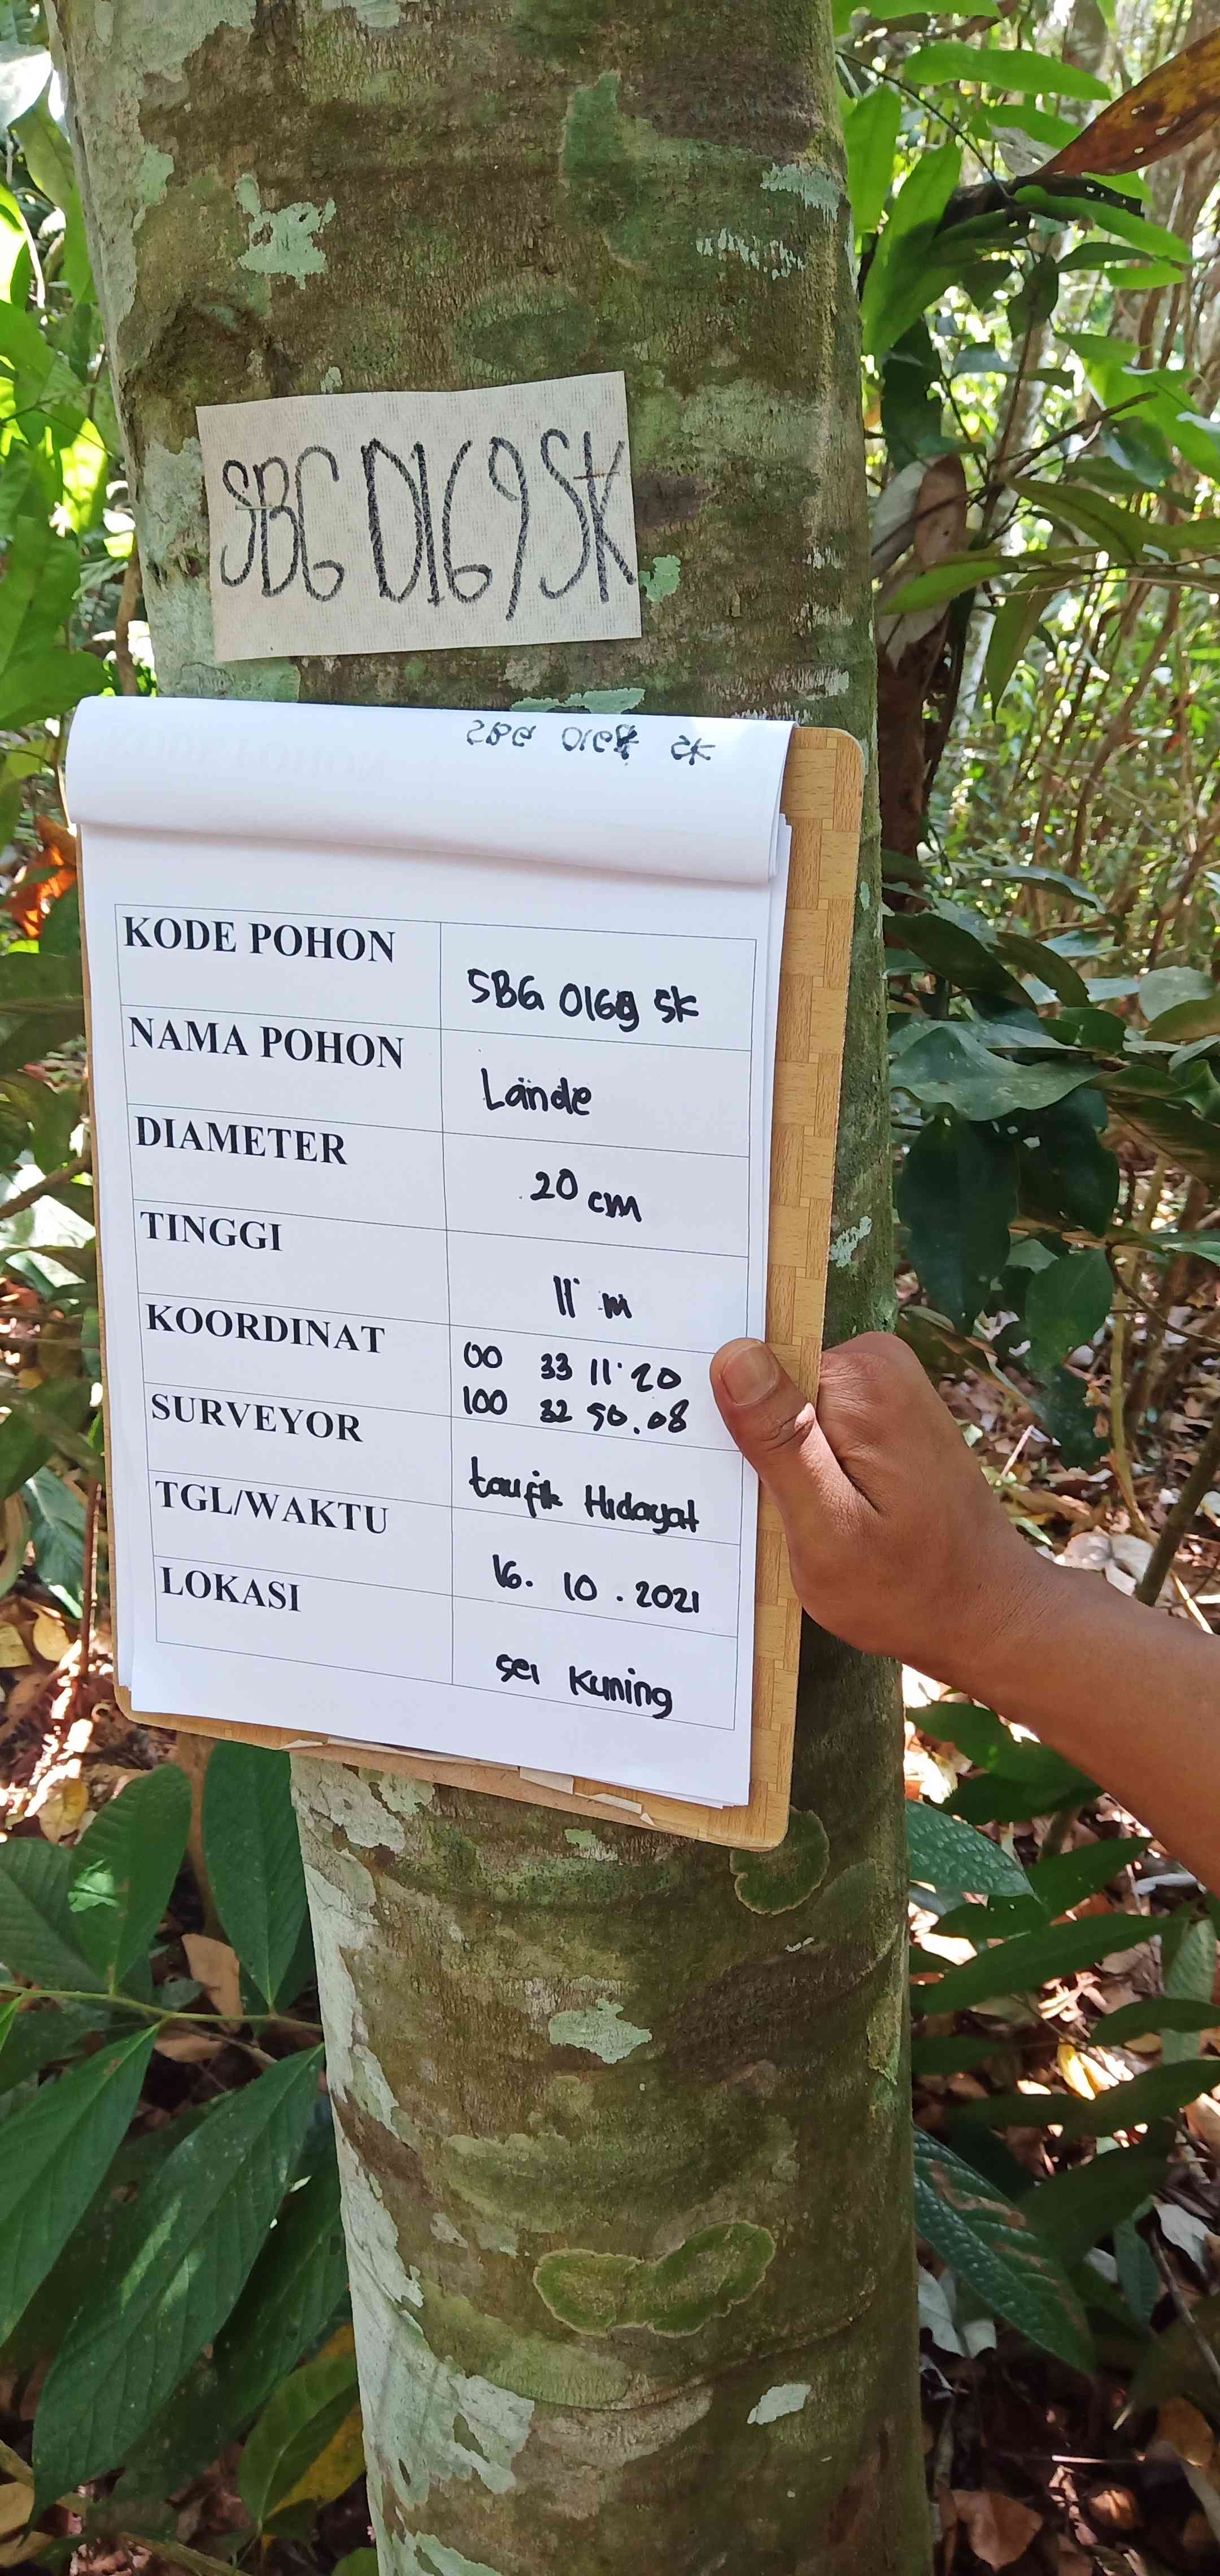 SBG 0169 SK
KODE POHON
SBG 0169 SK
NAMA POHON
Lande
DIAMETER
20 cm
TINGGI
11 m
KOORDINAT
00 33 11.20
100 32 50.08
SURVEYOR
taufik Hidayat
TGL/WAKTU
16. 10 . 2021
LOKASI
sei Kuning